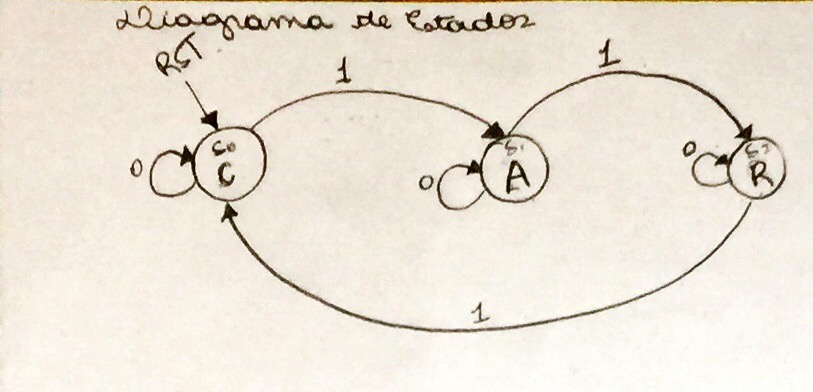 Diagrama de Estados
RST
1
1
0
S0
C
0
S1
A
0
S2
R
1